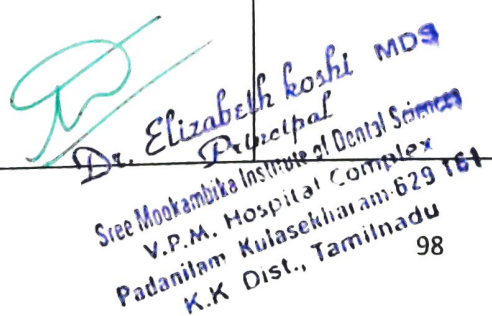 Dr. Elizabeth koshi MDS
Principal
Sree Mookambika Institute of Dental Sciences
V.P.M. Hospital Complex
Padanilam Kulasekharam-629 161
K.K Dist., Tamilnadu
98